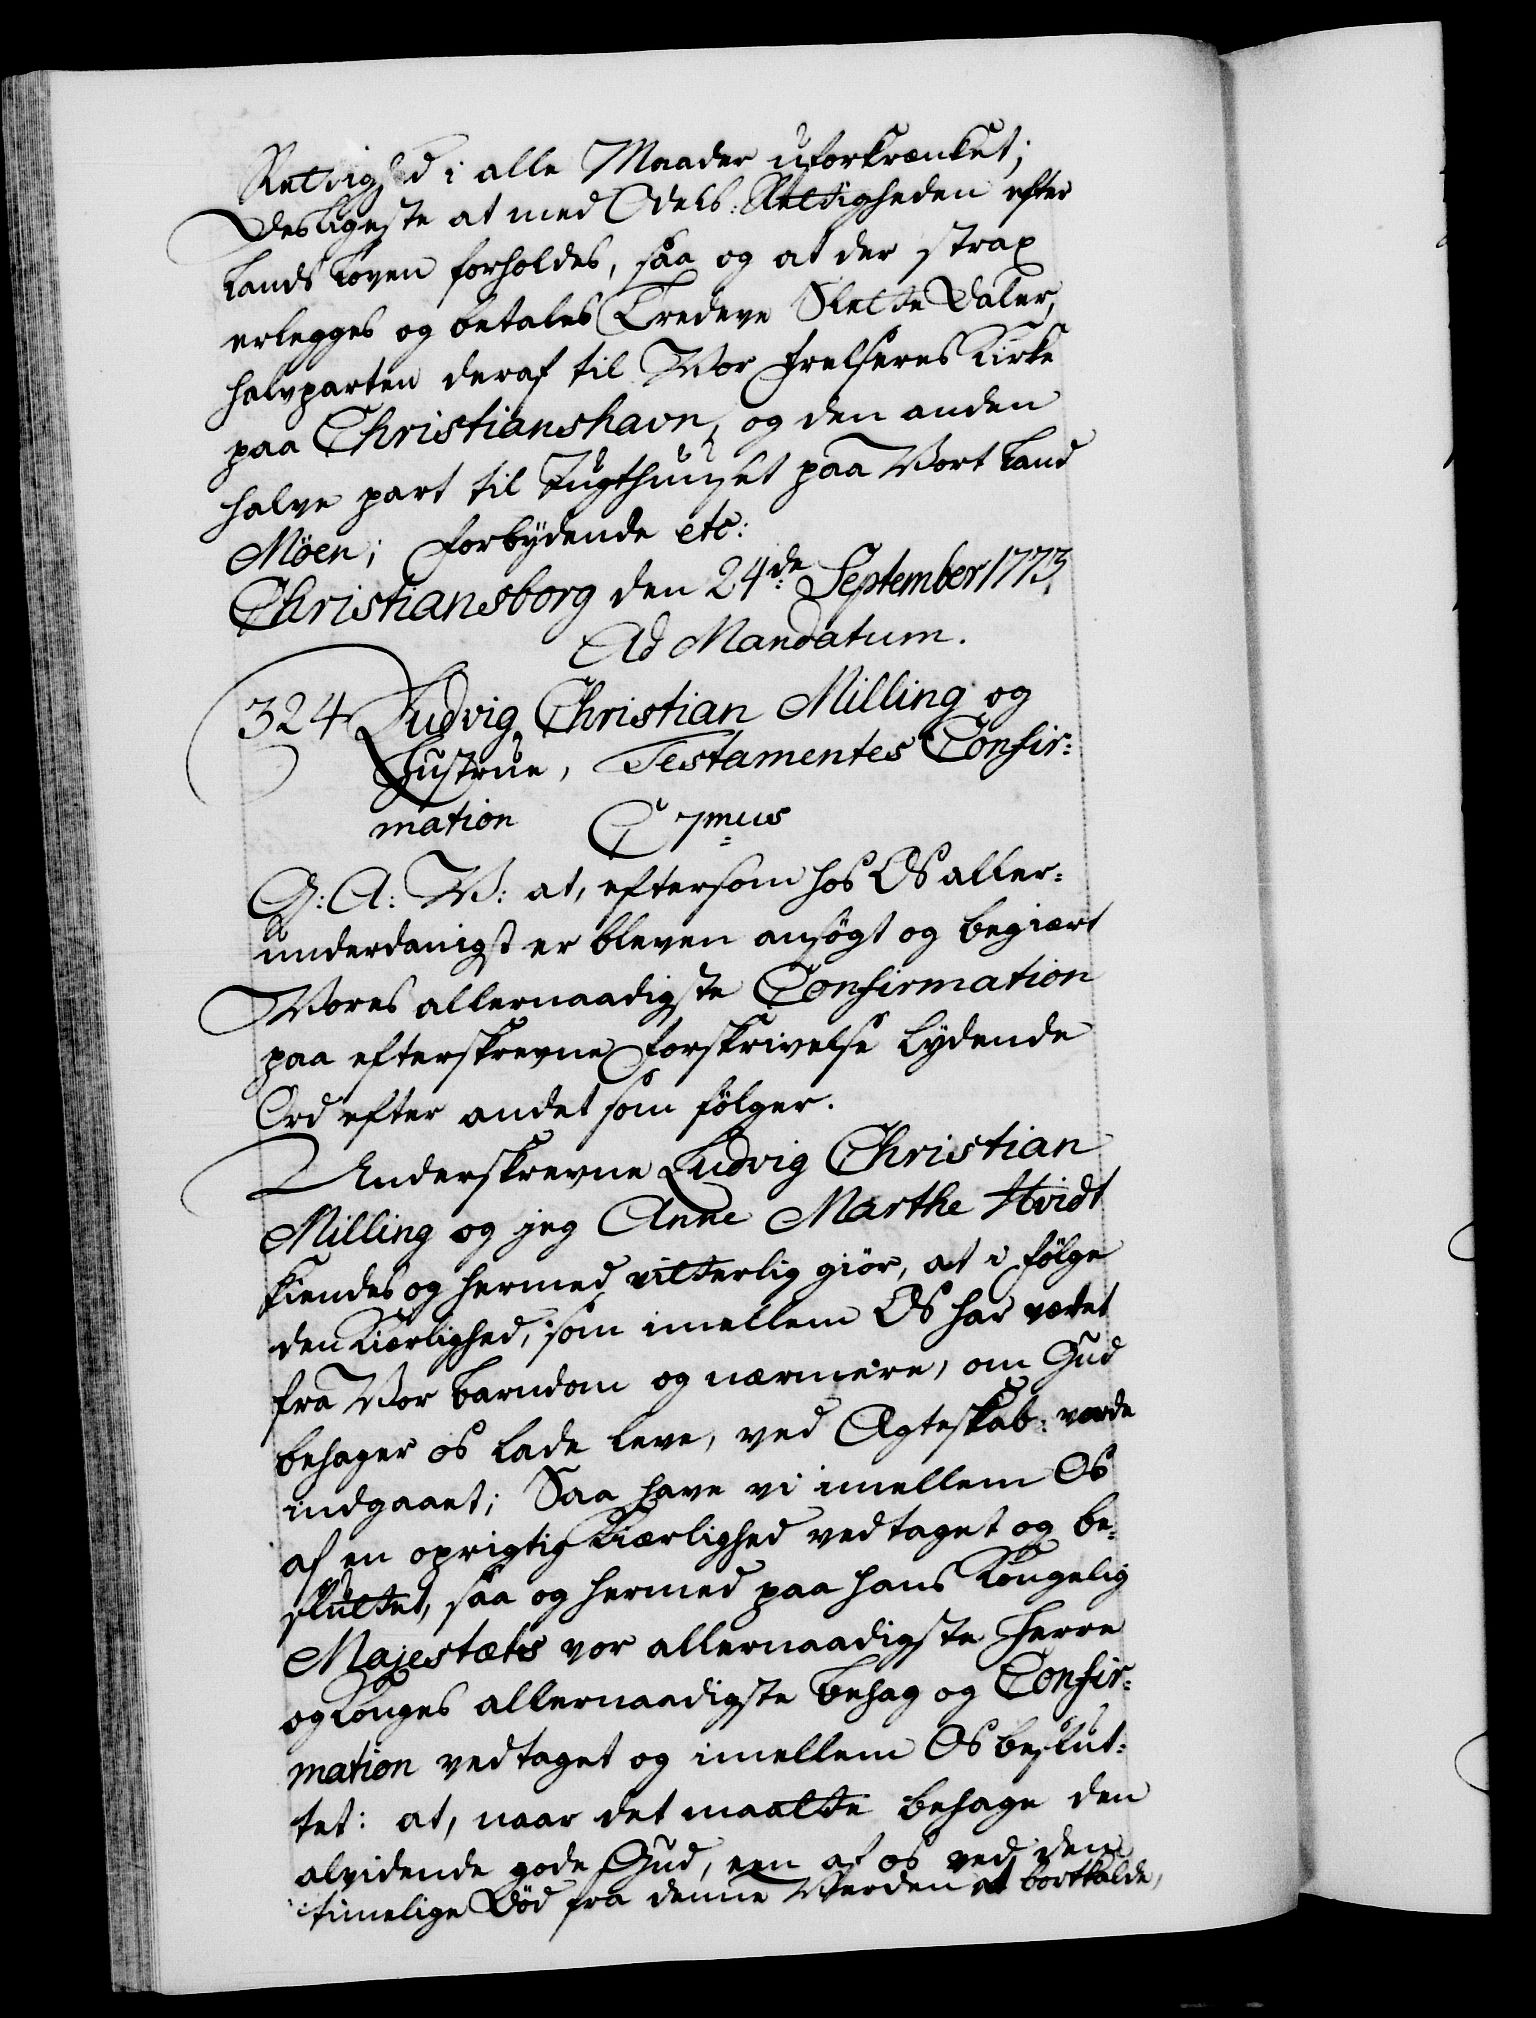 Rettighed i alle Maader uforkrænket;
Desligeste at med Odels-Rettigheden efter
Lands Loven forholdes, saa og at der strax
erlegges og betales Tredeve Slette Daler,
halvparten deraf til Vor Frelseres Kirke
paa Christianshavn, og den anden
halve part til Tugthuuset paa Vort Land
Möen; Forbydende etc:
Christiansborg den 24de September 1773.
Ad Mandatum.
324 Ludvig Christian Milling og
Hustrue, Testamentes Confir:
mation C 7mus
G: A: V: at, eftersom hos Os aller:
underdanigst er bleven ansögt og begiært
Vores allernaadigste Confirmation
paa efterskrevne Forskrivelse lydende
Ord efter andet som fölger.
Underskrevne Ludvig Christian
Milling og jeg Anne Marthe Hvidt
kiendes og hermed vitterlig giör, at i fölge
den Kierlighed, som imellem Os har været
fra Vor Barndom og nærmere, om Gud
behager os lade leve, ved Ægteskab: vorde
indgaaet; Saa have vi imellem Os
af en oprigtig Kiærlighed vedtaget og be:
sluttet, saa og hermed paa hans Kongelig
Majestæts vor allernaadigste Herre
og Konges allernaadigste Behag og Confir:
mation vedtaget og imellem Os beslut:
tet: at, naar det maatte behage den
alvidende gode Gud, een af os ved den
timelige Död fra denne Verden at bortkalde,